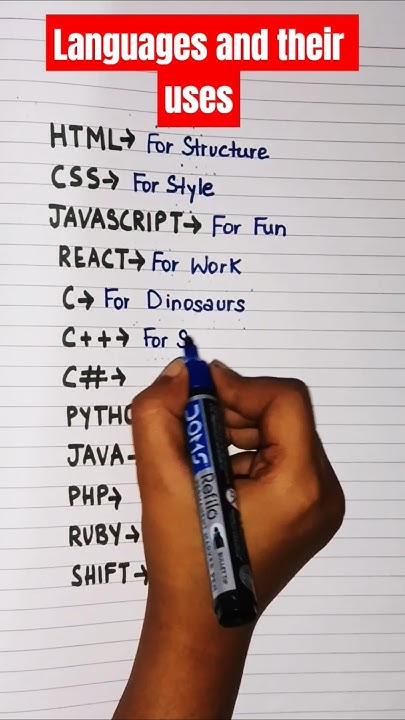 Languages and their
uses
HTML→ For Structure
CSS→ For Style
JAVASCRIPT→ For Fun
REACT→ For Work
C→ For Dinosaurs
C++→ For S
C#→
PYTHO
JAVA-
PHP→
RUBY→
SHIFT-
DOMS Refilo
BULLET TIP